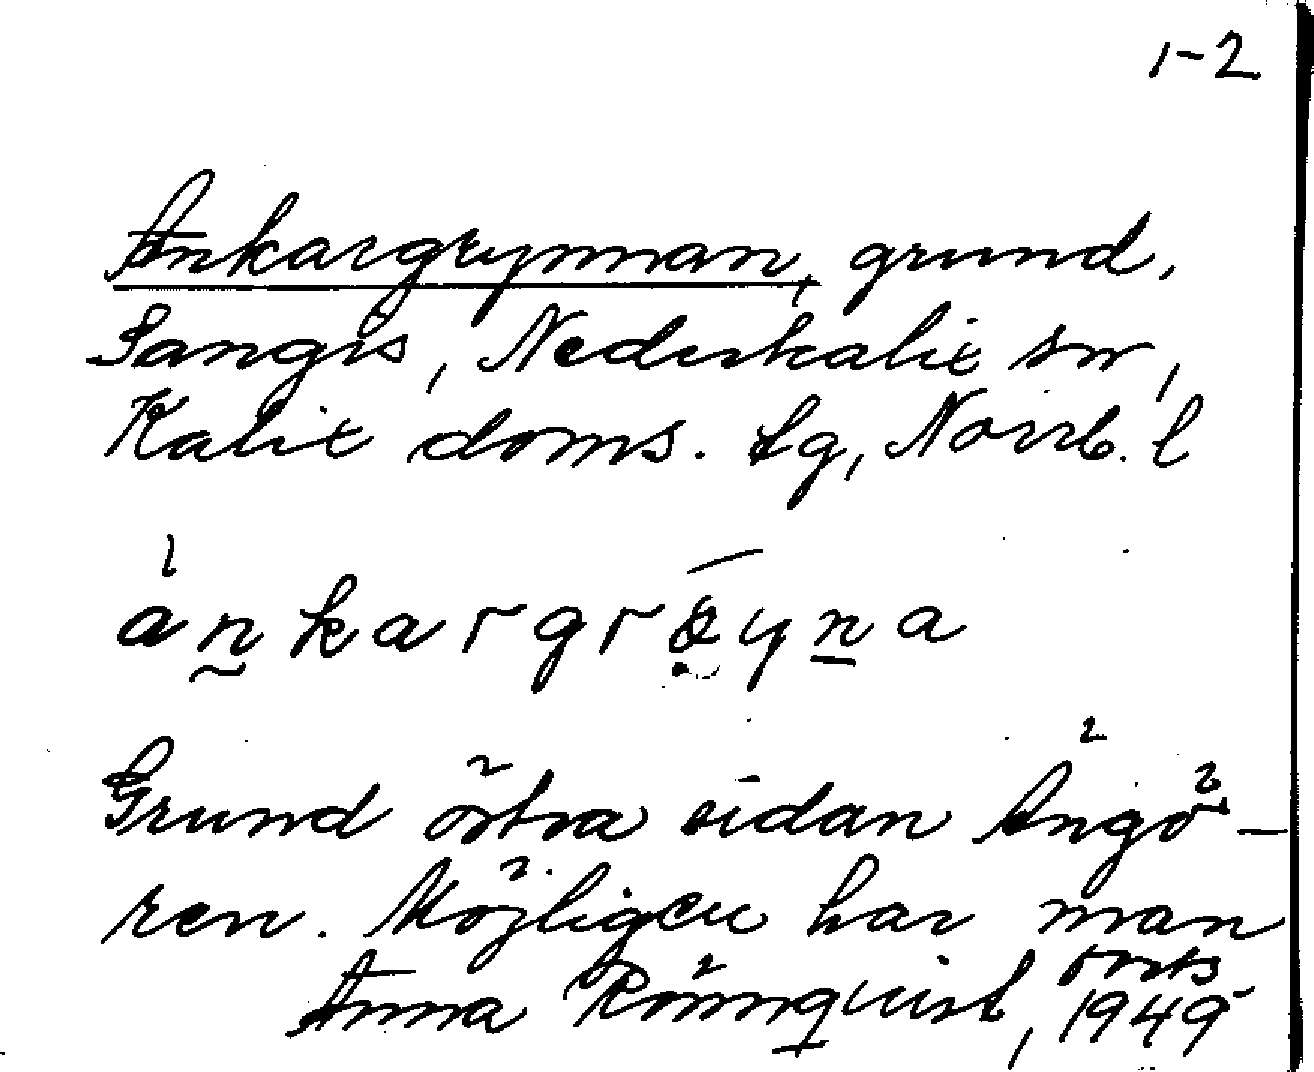 1-2
Ankargrynnan, grund,
Sangis, Nederkalix sn,
Kalix doms. tg, Norrb. l
Grund östra sidan Ängö-
ren. Möjligen har man
Anna Rönnqvist, 1949